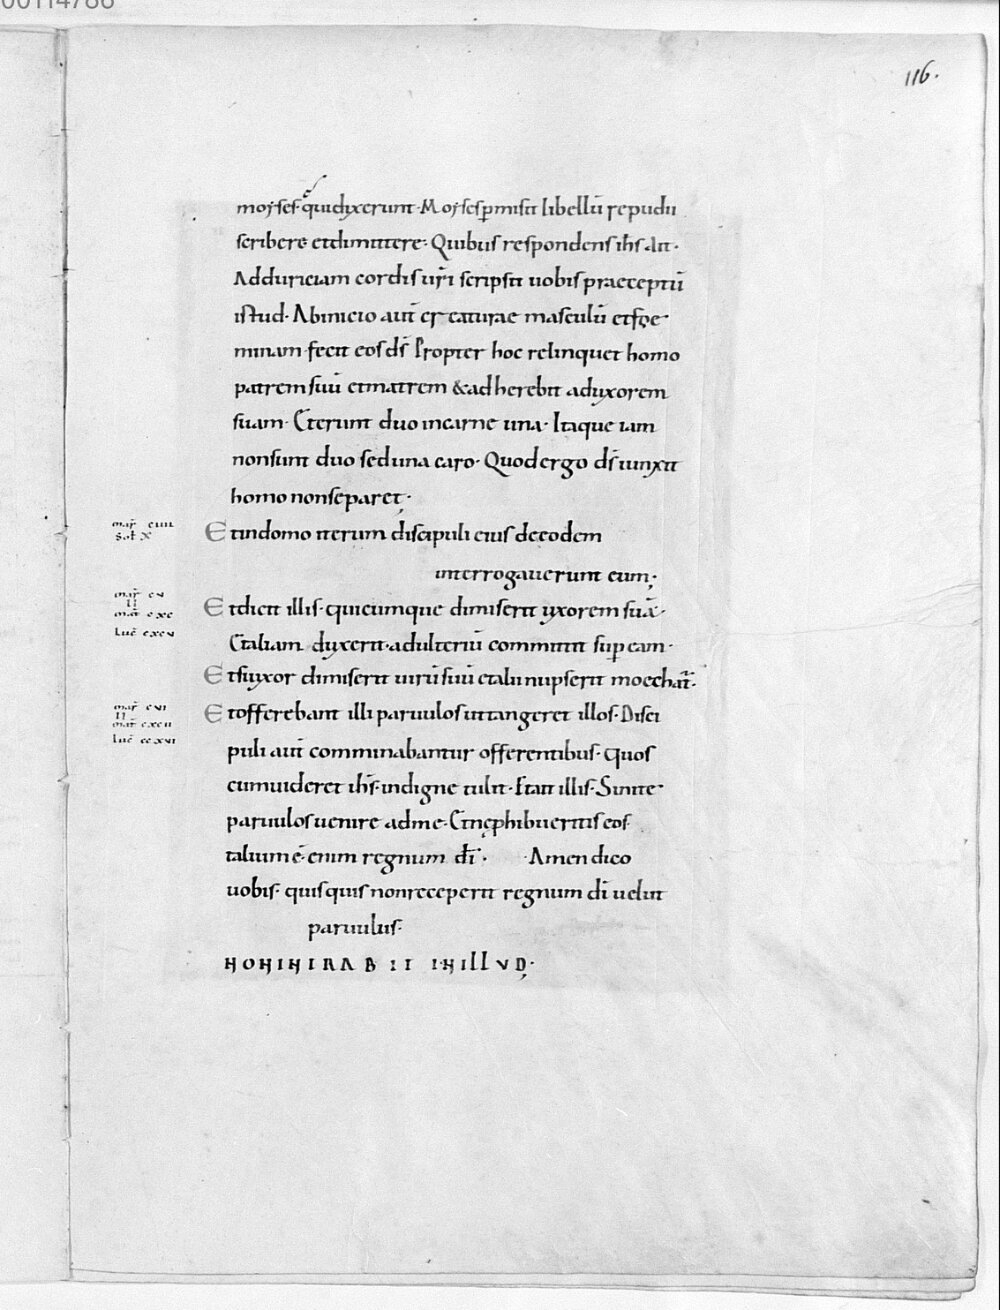 00114786
116.
moyses· quidyxerunt· Moysesp̄misit libellū repudii
scribere etdimittere· Quibus respondens ih̄s Ait·
Adduriciam cordis ur̄i scripsit uobis praeceptū
istud· Abinicio aut̄ creaturae masculū etfoe
minam fecit eos ds̄ Propter hoc relinquet homo
patrem suū etmatrem &adherebit aduxorem
suam· Eterunt duo incarne una· Itaque iam
nonsunt duo seduna caro· Quodergo ds̄ iunxit
homo nonseparet·
mar̄ ciiii
sol̄ x
Etindomo iterum discipuli eius deeodem
interrogauerunt eum;
mar̄ cv
II
mat̄ cxc
luc̄ cxcv
Etdicit illis· quicumque dimiserit yxorem suā·
Etaliam dyxerit· adulteriū committit sup eam·
Etsiuxor dimiserit uirū suū etalii nupserit moechat̄·
mar̄ cvi
II
mat̄ cxcii
luc̄ ccxvi
Etofferebant illi paruulos uttangeret illos· Disci
puli aut̄ comminabantur offerentibus· quos
cumuideret ih̄s· indigne tulit· Etait illis· Sinite
paruulos uenire adme· Etneprhibueritis eos
talium ē· enim regnum dī· Amen dico
uobis· quisquis nonreceperit regnum dī uelut
paruulus·
NONINTRABIT INILLVD·